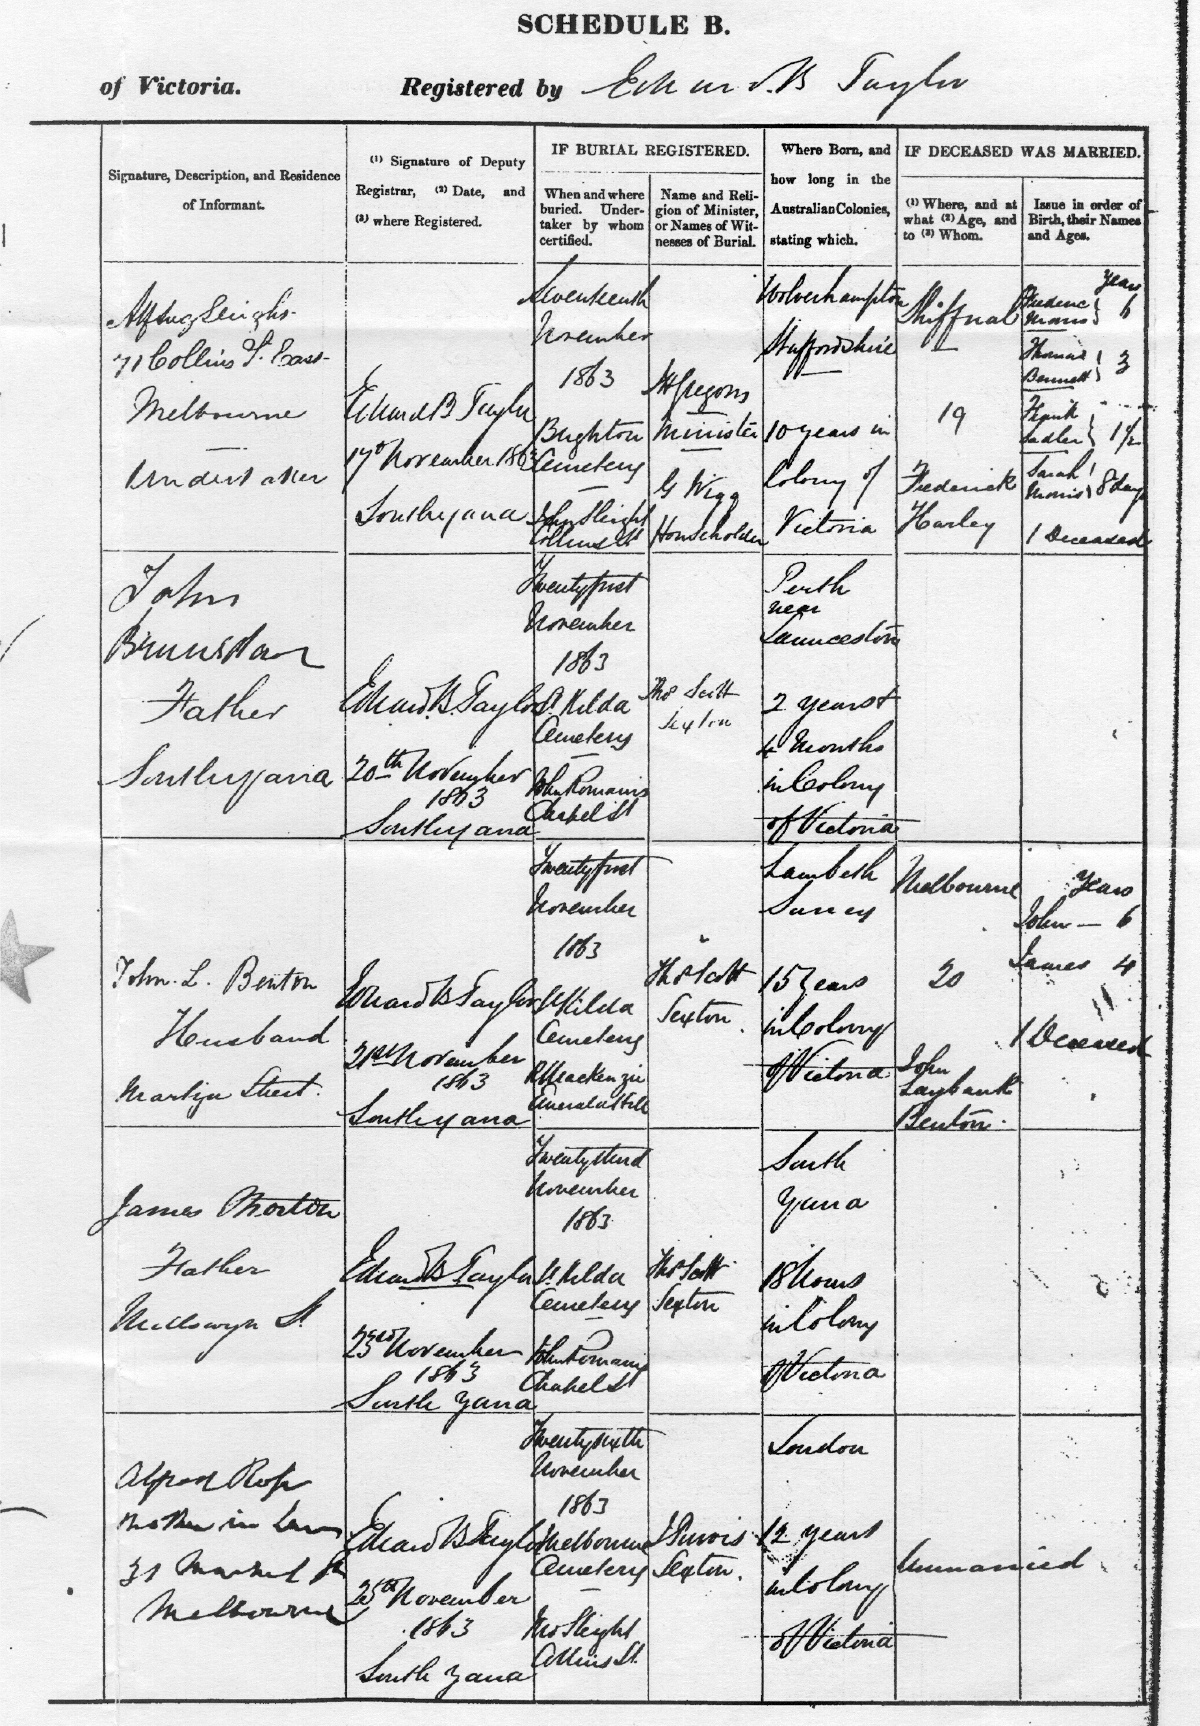 SCHEDULE B.
of Victoria.
Registered by Edward B Taylor
Signature, Description, and Residence
of Informant.
(1) Signature of Deputy
Registrar, (2) Date, and
(3) where Registered.
IF BURIAL REGISTERED.
When and where
buried. Under-
taker by whom
certified.
Name and Reli-
gion of Minister,
or Names of Wit-
nesses of Burial.
Where Born, and
how long in the
Australian Colonies,
stating which.
IF DECEASED WAS MARRIED.
(1) Where, and at
what (2) Age, and
to (3) Whom.
Issue in order of
Birth, their Names
and Ages.
71 Collins St East
Melbourne
Undertaker
Edward B Taylor
17th November 1863
South Yarra
Seventeenth
November
1863
Brighton
Cemetery
John Sleight
Collins St
Gregory
Minister
G Wigg
Householder
Wolverhampton
Staffordshire
10 years in
Colony of
Victoria
Shiffnal
19
Frederick
Harley
Years
Frederic
Morris } 6
Thomas
Bennett } 3
Frank
Sadler } 1½
Sarah
Morris } 8 days
1 Deceased
John
Brunsdon
Father
South Yarra
Edward B. Taylor
20th November
1863
South Yarra
Twenty first
November
1863
St Kilda
Cemetery
John Romanis
Chapel St
Thos Scott
Sexton
Perth
near
Launceston
2 years &
4 Months
in Colony
of Victoria
John L. Benton
Husband
Martin Street.
Edward B Taylor
21st November
1863
South Yarra
Twenty first
November
1863
St Kilda
Cemetery
R Mackenzie
Emerald Hill
Thos Scott
Sexton.
Lambeth
Surrey
15 years
in Colony
of Victoria
Melbourne
20
John
Laybank
Benton.
Years
John — 6
James 4
1 Deceased
James Morton
Father
Millswyn St
Edward B Taylor
23rd November
1863
South Yarra
Twenty third
November
1863
St Kilda
Cemetery
John Romanis
Chapel St
Thos Scott
Sexton
South
Yarra
18 hours
in Colony
of Victoria
Alfred Ross
Brother in Law
31 Market St
Melbourne
Edward B Taylor
25th November
1863
South Yarra
Twenty sixth
November
1863
Melbourne
Cemetery
Jno Sleight
Collins St.
J Purvis
Sexton.
London
12 years
in Colony
of Victoria
Unmarried